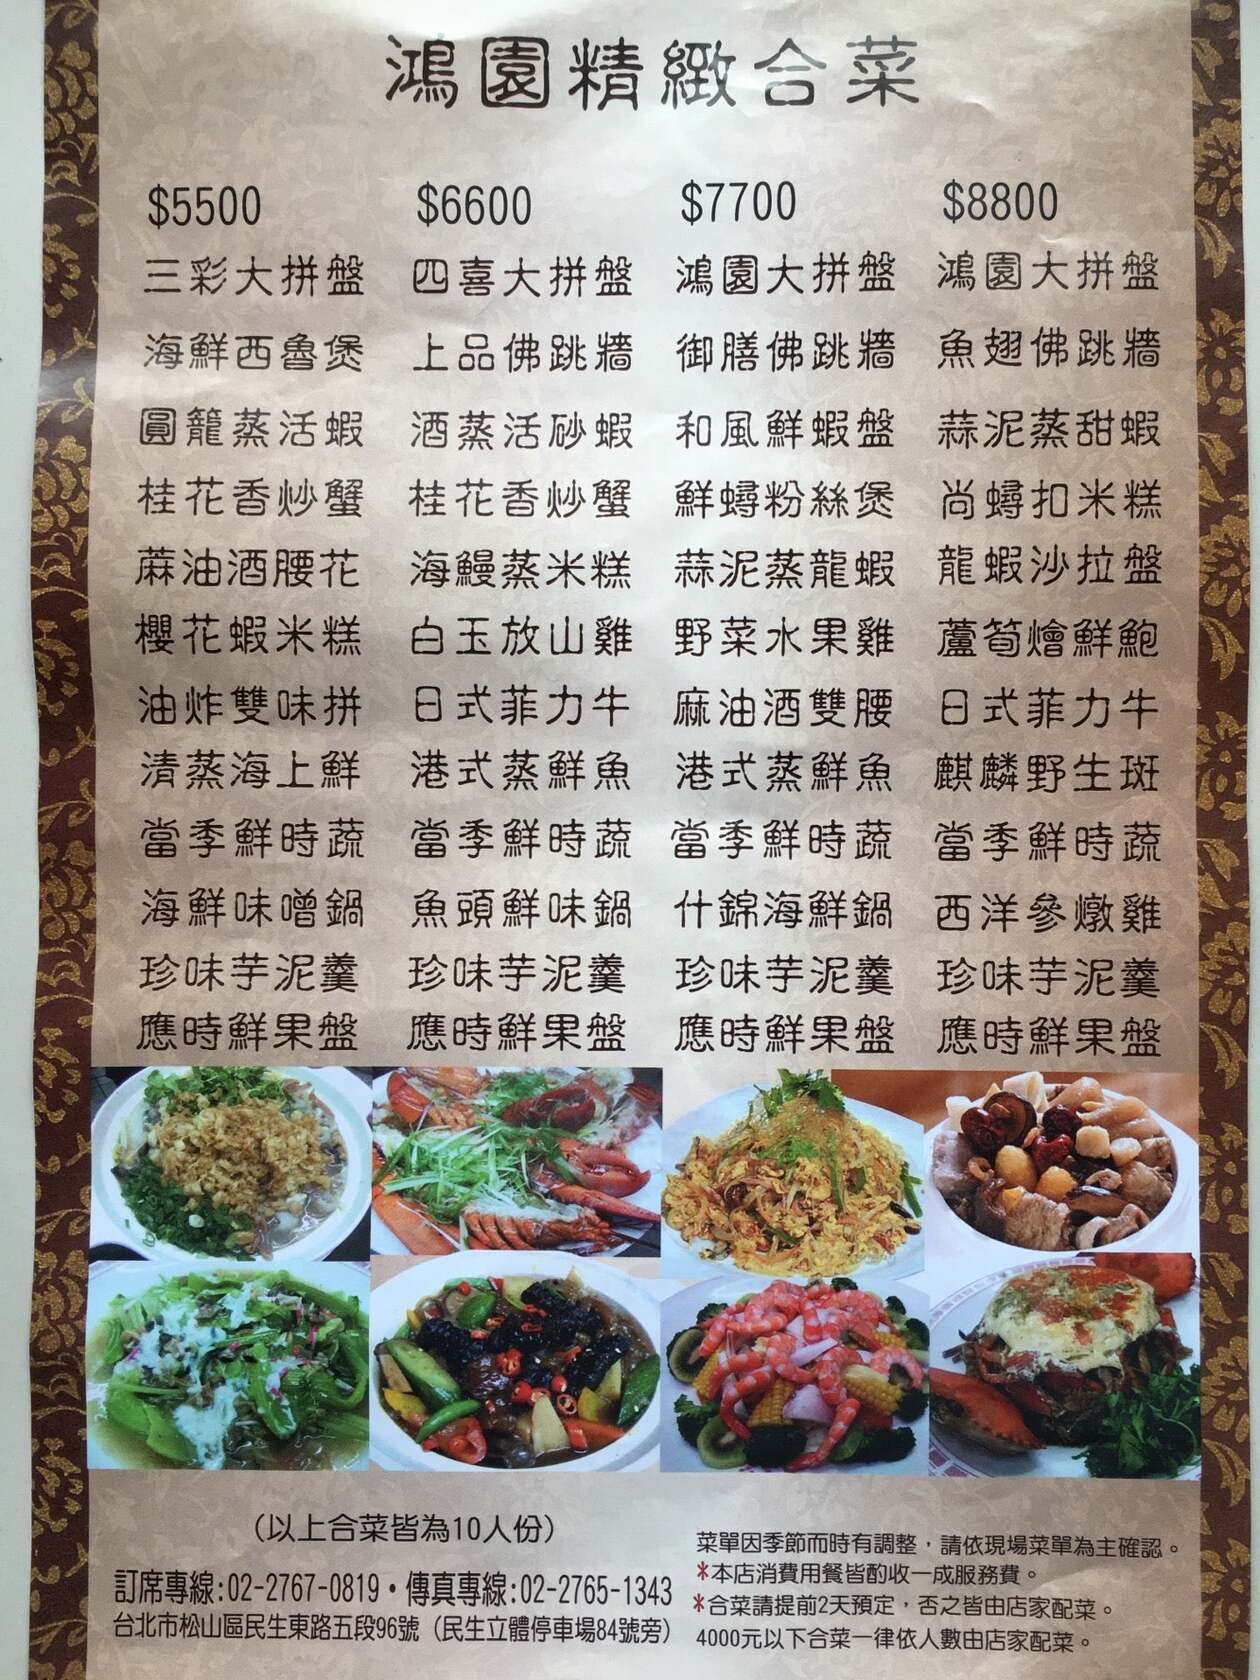 鴻園精緻合菜
$5500
三彩大拼盤
海鮮西魯煲
圓籠蒸活蝦
桂花香炒蟹
蔴油酒腰花
櫻花蝦米糕
油炸雙味拼
清蒸海上鮮
當季鮮時蔬
海鮮味噌鍋
珍味芋泥羹
應時鮮果盤
$6600
四喜大拼盤
上品佛跳牆
酒蒸活砂蝦
桂花香炒蟹
海鰻蒸米糕
白玉放山雞
日式菲力牛
港式蒸鮮魚
當季鮮時蔬
魚頭鮮味鍋
珍味芋泥羹
應時鮮果盤
$7700
鴻園大拼盤
御膳佛跳牆
和風鮮蝦盤
鮮蟳粉絲煲
蒜泥蒸龍蝦
野菜水果雞
麻油酒雙腰
港式蒸鮮魚
當季鮮時蔬
什錦海鮮鍋
珍味芋泥羹
應時鮮果盤
$8800
鴻園大拼盤
魚翅佛跳牆
蒜泥蒸甜蝦
尚蟳扣米糕
龍蝦沙拉盤
蘆筍燴鮮鮑
日式菲力牛
麒麟野生斑
當季鮮時蔬
西洋參燉雞
珍味芋泥羹
應時鮮果盤
（以上合菜皆為10人份）
訂席專線:02-2767-0819・傳真專線:02-2765-1343
台北市松山區民生東路五段96號（民生立體停車場84號旁）
菜單因季節而時有調整，請依現場菜單為主確認。
*本店消費用餐皆酌收一成服務費。
*合菜請提前2天預定，否之皆由店家配菜。
4000元以下合菜一律依人數由店家配菜。